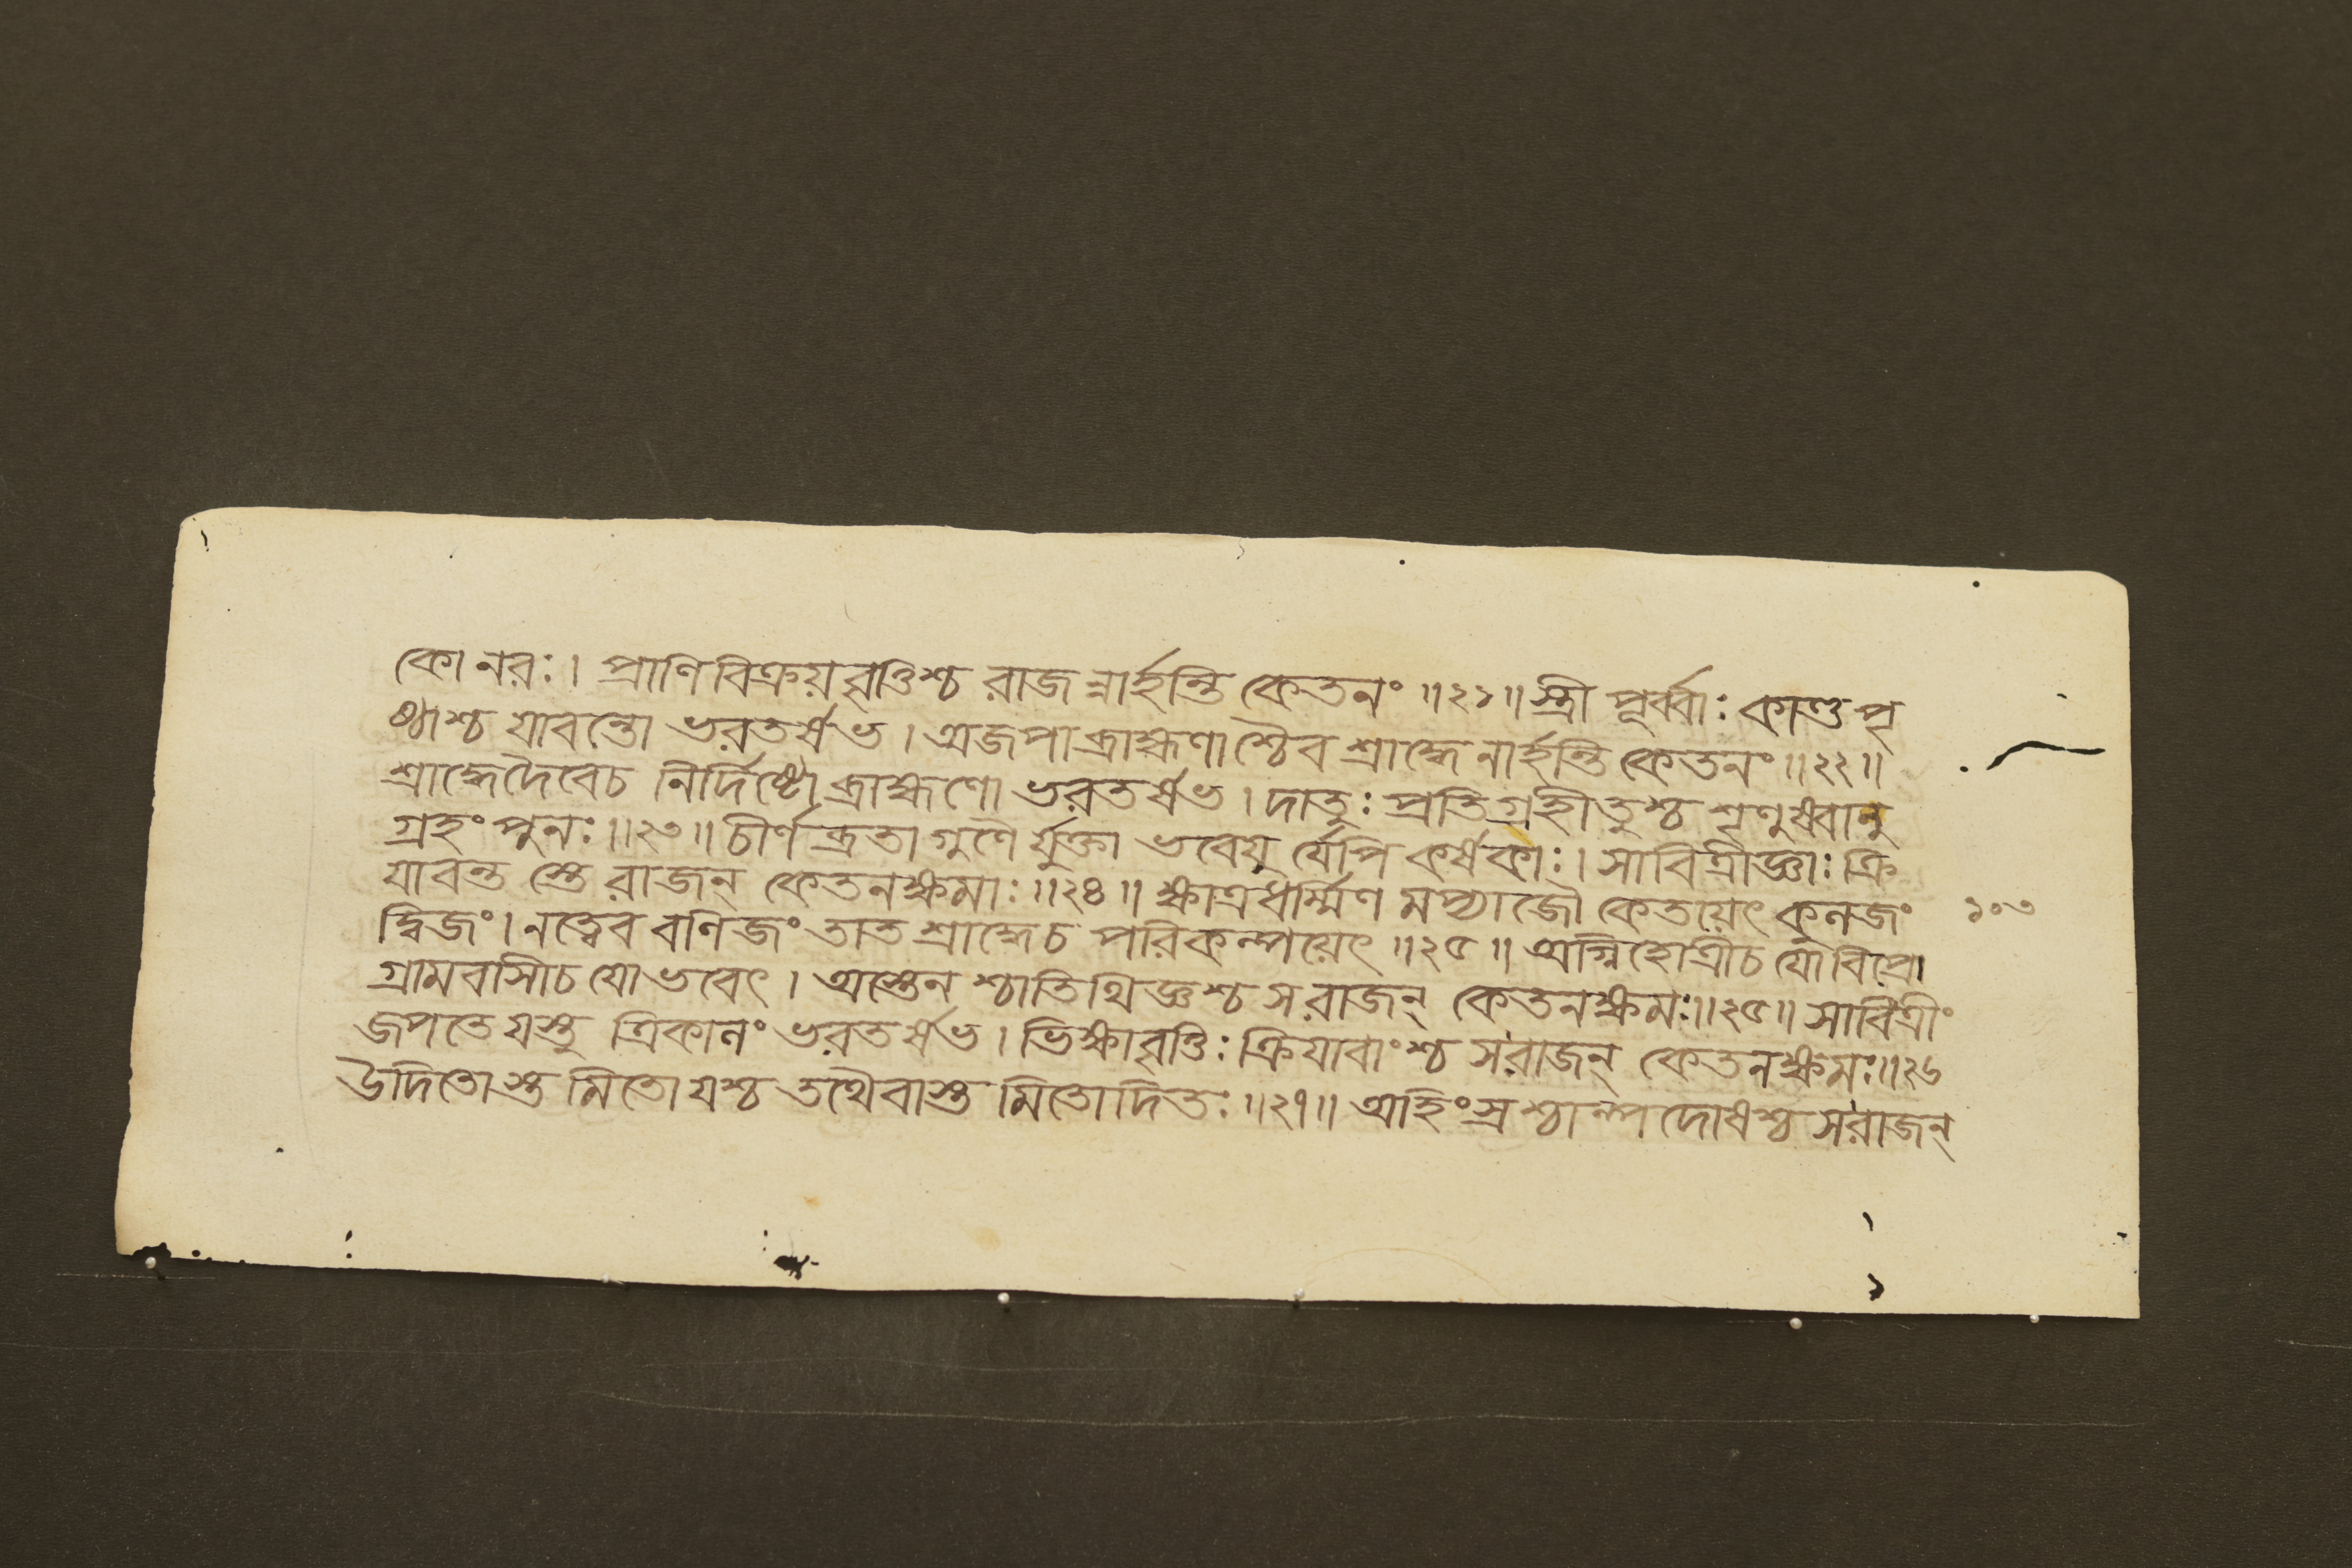 কো নরঃ। প্রাণিবিক্রয়বৃত্তিশ্চ রাজন্নার্হন্তি কেতনং ॥২১॥ স্ত্রী পূর্ব্বাঃ কাণ্ডপৃ
ষ্ঠাশ্চ যাবন্তো ভরতর্ষভ। অজপা ব্রাহ্মণাশ্চৈব শ্রাদ্ধে নার্হন্তি কেতনং ॥২২॥
শ্রাদ্ধে দৈবেচ নির্দিষ্টো ব্রাহ্মণো ভরতর্ষভ। দাতুঃ প্রতিগ্রহীতুশ্চ শৃণুষ্বানু
গ্রহং পুনঃ ॥২৩॥ চীর্ণ ব্রতা গুণৈর্যুক্তা ভবেযু র্যেপি কর্ষকাঃ। সাবিত্রীজ্ঞাঃ ক্রি
যাবন্ত স্তে রাজন্ কেতনক্ষমাঃ ॥২৪॥ ক্ষাত্রধর্ম্মিণ মপ্যাজৌ কেতয়েৎ কুলজং
দ্বিজং। নত্বেব বণিজং তাত শ্রাদ্ধেচ পরিকল্পয়েৎ ॥২৫॥ অগ্নিহোত্রীচ যোবিপ্রো
গ্রামবাসীচ যোভবেৎ। অস্তেন শ্চাতিথিজ্ঞশ্চ সরাজন্ কেতনক্ষমঃ॥২৫॥ সাবিত্রীং
জপতে যস্তু ত্রিকালং ভরতর্ষভ। ভিক্ষাবৃত্তিঃ ক্রিযাবাংশ্চ সরাজন্ কেতনক্ষমঃ॥২৬
উদিতোস্ত মিতো যশ্চ তথৈবাস্ত মিতোদিতঃ ॥২৭॥ অহিংস্রশ্চাল্পদোষশ্চ সরাজন্
১০৩